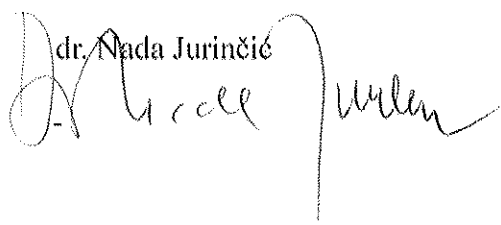 dr. Nada Jurinčić